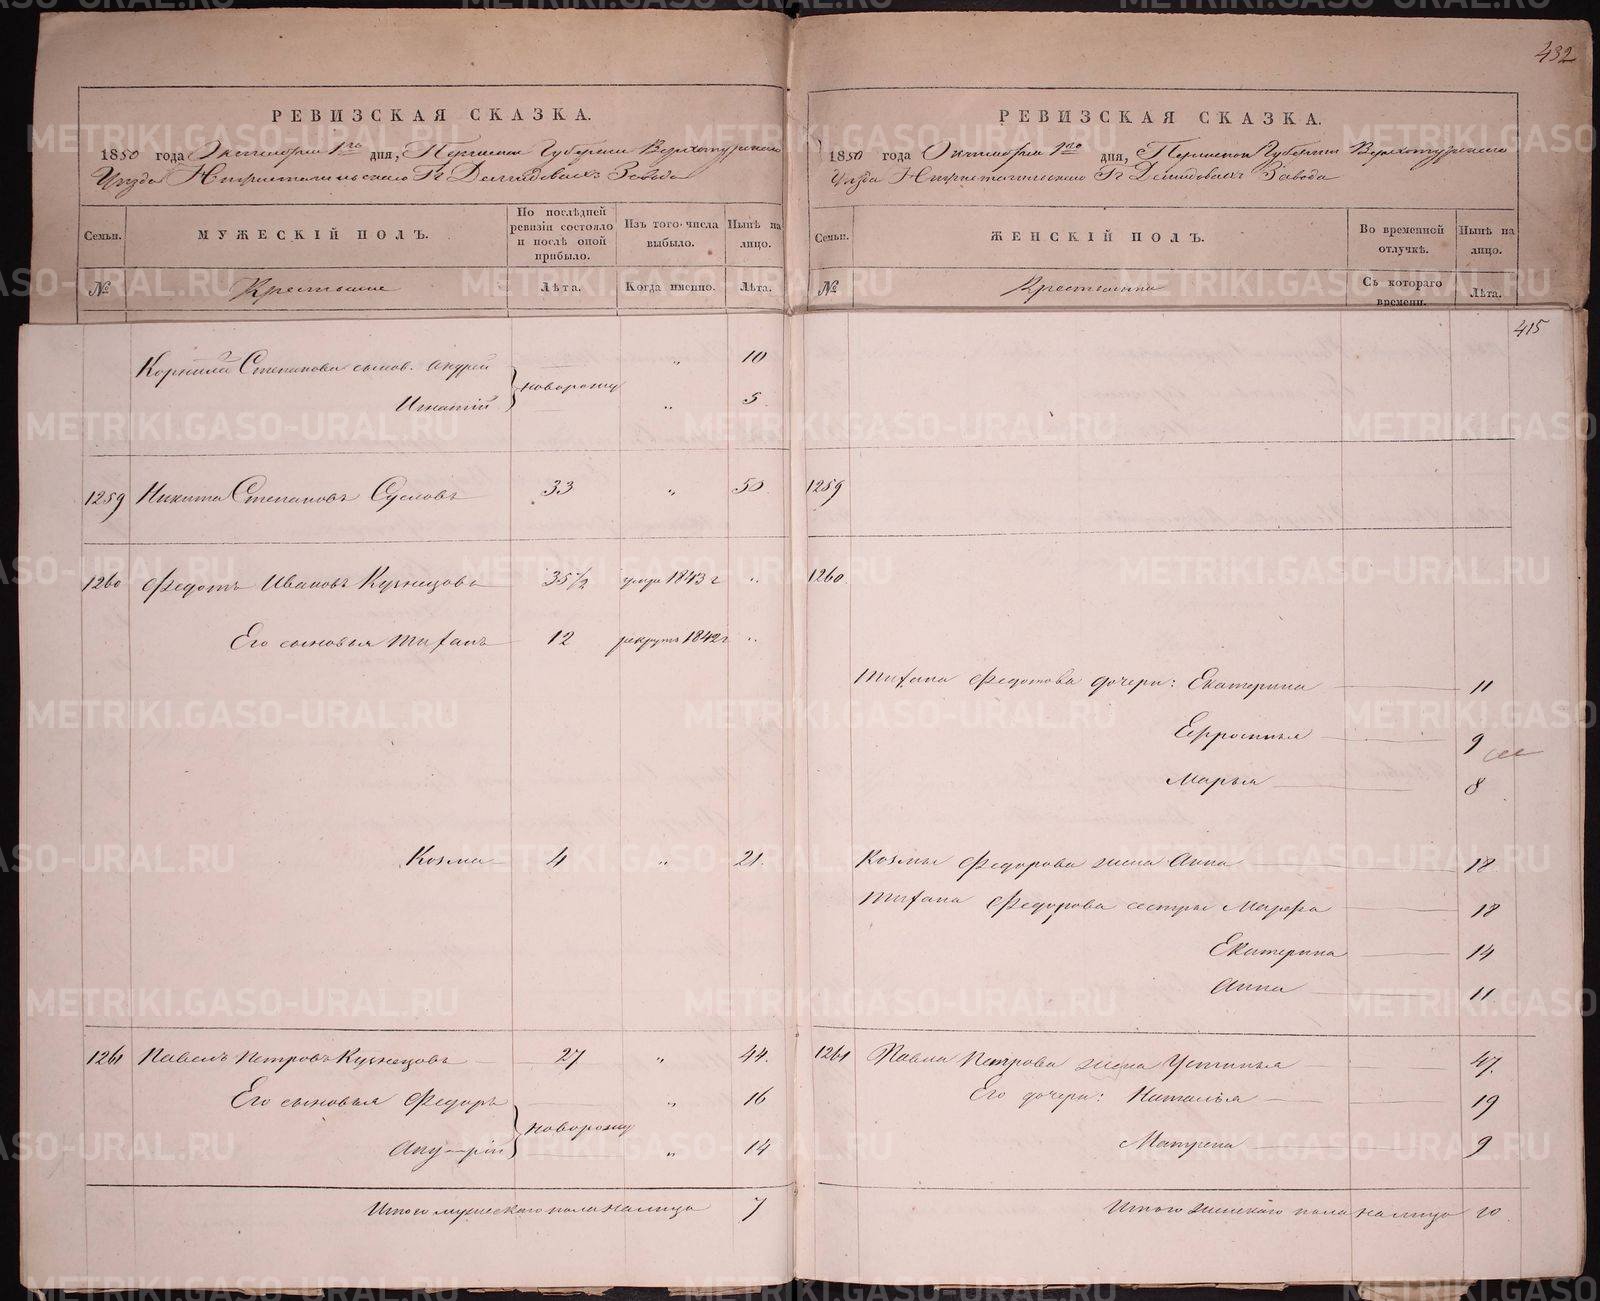 432
РЕВИЗСКАЯ СКАЗКА.
1850 года Октября 1го дня, Пермской Губернии Верхотурского
Уѣзда Нижнетагильского Гг Демидовыхъ Завода
Семьи.
МУЖЕСКІЙ ПОЛЪ.
По послѣдней ревизіи состояло и послѣ оной прибыло.
Изъ того числа выбыло.
Нынѣ на лицо.
№
Крестьяне
Лѣта.
Когда именно.
Лѣта.
Корнила Степанова сынов. Андрей " 10
новорожд
Игнатій " 5
1259 Никита Степановъ Сусловъ 33 " 50
1260 Федотъ Ивановъ Кузнецовъ 35½ умре 1843 г "
Его сыновья Тифанъ 12 рекрутъ 1842 г "
Козма 4 " 21.
1261 Павелъ Петровъ Кузнецовъ 27 " 44.
Его сыновья Федоръ " 16
новорожд
" 14
Итого мужескаго пола на лицо 7
РЕВИЗСКАЯ СКАЗКА.
1850 года Октября 1го дня, Пермской Губернии Верхотурского
Уѣзда Гг Демидовыхъ Завода
Семьи.
ЖЕНСКІЙ ПОЛЪ.
Во временной отлучкѣ.
Нынѣ на лицо.
№
Крестьянки
Съ котораго времени.
Лѣта.
415
1259
1260
Тифана Федотова дочери: Екатерина 11
Ефросинья 9
Марья 8
Козмы Федорова жена Анна 18
Тифана Федорова сестры Марфа 18
Екатерина 14
Анна 11
1261 Павла Петрова жена Устинья 47.
Его дочери: Наталья 19
Матрена 9
Итого женскаго пола на лицо 10
METRIKI.GASO-URAL.RU